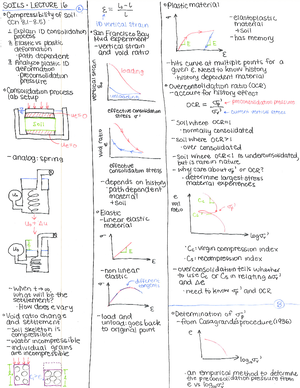 SOILS - LECTURE 16
*Compressibility of soil
(Ch 8.1 - 8.5)
1. Explain 1D consolidation
process
2. Elastic vs plastic
deformation
- path dependent
3. Analyze plastic 1D
deformation
- preconsolidation
pressure
*Consolidation process
lab setup
- analog: spring
- when t→∞
what will be the
settlement?
- How does e vary
*Void ratio change
and settlement
- Soil skeleton is
compressible
- water incompressible
- individual grains
are incompressible
1D vertical strain
*San Francisco Bay
Mud experiment
- vertical strain
and void ratio
vertical strain
loading
effective consolidation
stress
void ratio
effective consolidation
stress
- depends on history
- path dependent
material
*Soil
*Elastic
- Linear elastic
material
σ
ε
- non linear
elastic
σ
ε
- load and
unload: goes back to
original point
*Plastic material
- elastoplastic
material
*soil
- has memory
σ
ε
- hits curve at multiple points for a
given σ. Need to know history
- history dependent material
*Overconsolidation ratio (OCR)
- account for history effect
OCR =
preconsolidation pressure
current vertical stress
- Soil where OCR=1
- normally consolidated
- Soil where OCR>1
- over consolidated
- Soil where OCR<1 is underconsolidated,
but is rare in nature
- Why care about σp' or OCR?
- determine largest stress
material experiences
e
void
ratio
log σv'
*Cc: virgin compression index
*Cr: recompression index
- overconsolidation tells whether
to use Cc or Cr in relating σv'
and Δe
- need to know σp' and OCR
*Determination of σp'
- from Casagrande procedure (1936)
e
log σv'
- an empirical method to determine
the preconsolidation pressure from
e vs log σv'